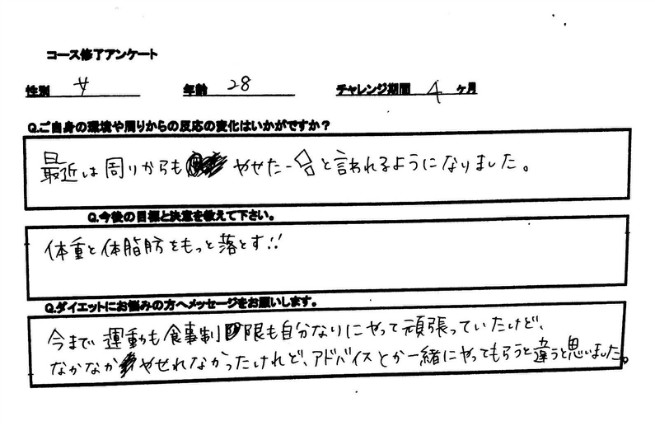 コース修了アンケート
性別 女 年齢 28 チャレンジ期間 4 ヶ月
Q.ご自身の環境や周りからの反応の変化はいかがですか？
最近は周りからも やせたー と言われるようになりました。
Q.今後の目標と決意を教えて下さい。
体重と体脂肪をもっと落とす!!
Q.ダイエットにお悩みの方へメッセージをお願いします。
今まで運動も食事制限も自分なりにやって頑張っていたけど、
なかなかやせれなかったけれど、アドバイスとか一緒にやってもらうと違うと思いました。